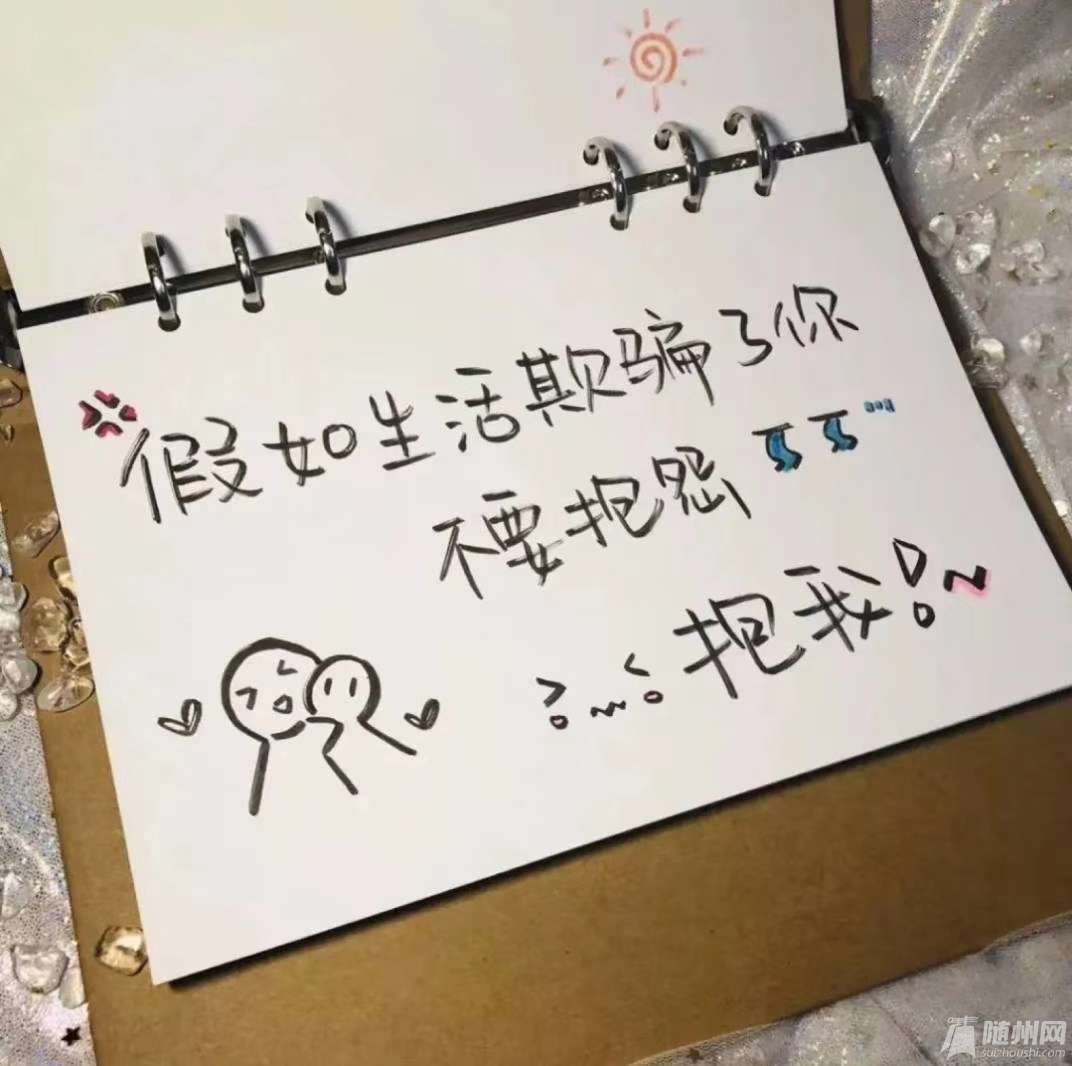 假如生活欺骗了你
不要抱怨
抱我!~
随州网
suizhoushi.com